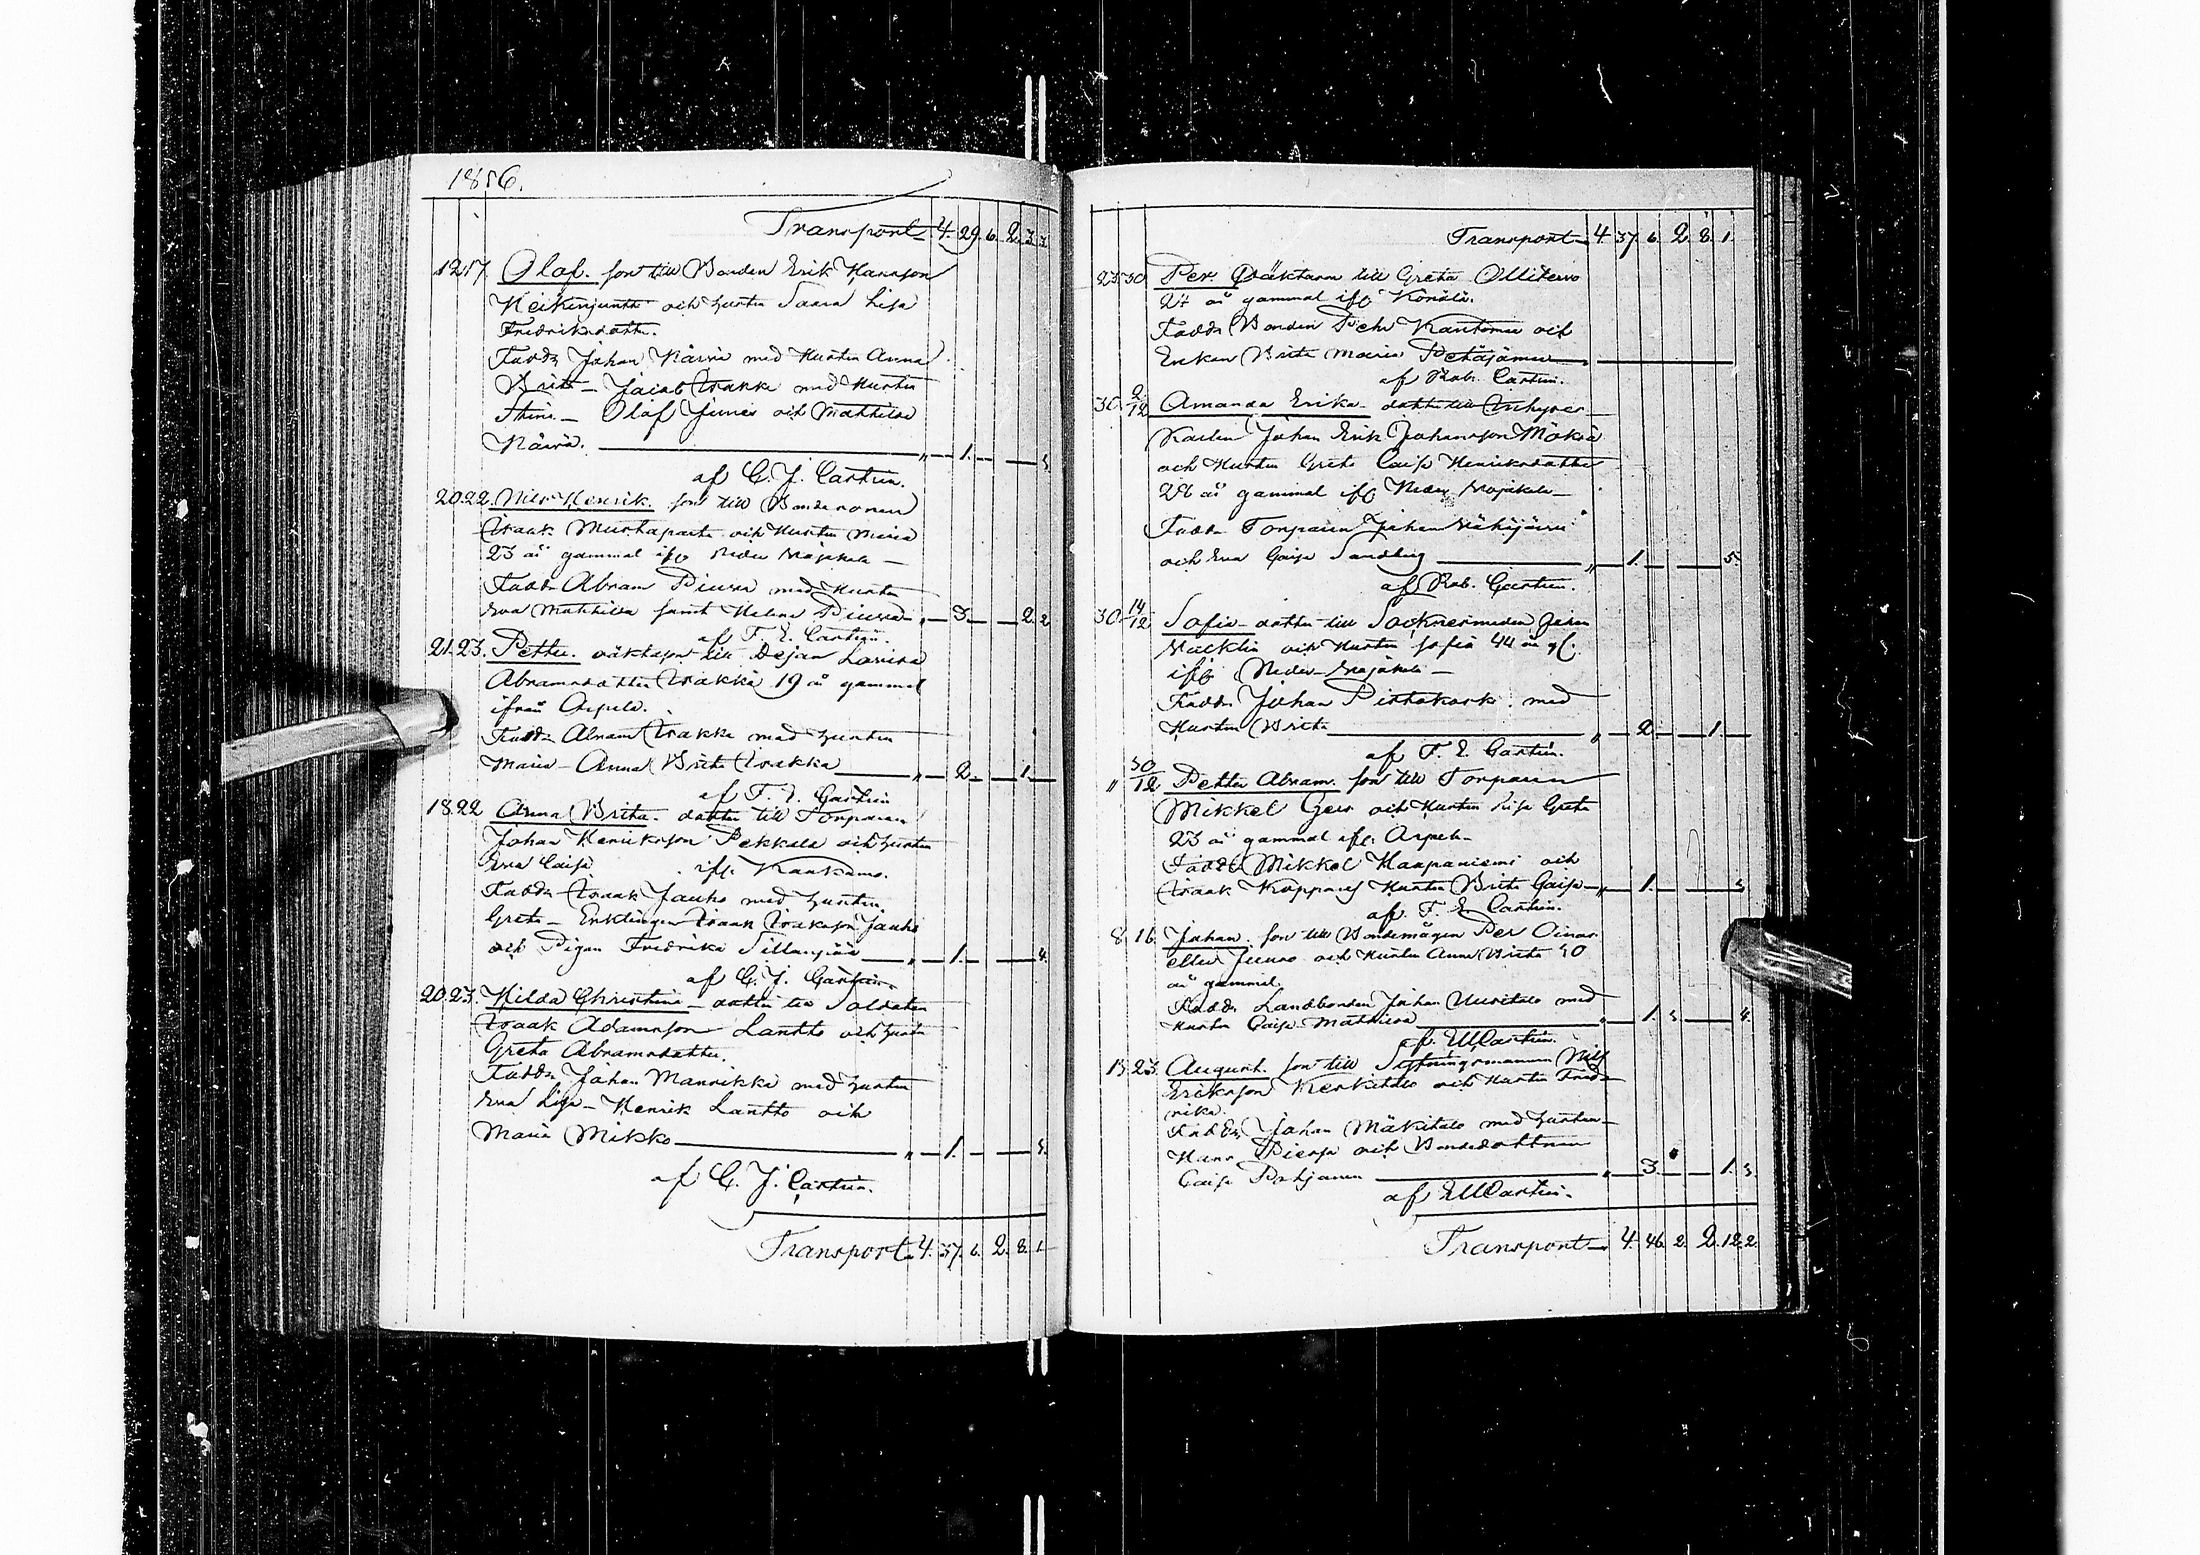 1856.
Transport 4. 29. 6. 2. 3. 3.
12. 17. Olof. son till Bonden Erik Hansson
Heikinjuntti och hustru Saara Lisa
Fredriksdotter.
Faddr Johan Närvä med Hustru Anna
Brita – Jacob Isakka med Hustru
Stina – Olof Junes och Mathilda
Närvä. „ – 1. – – 3
af C. J. Castrén.
20. 22. Nils Henrik. son till Bondesonen
Isaak Mustaparta och Hustru Maria
23 år gammal ifr. Neder Wojakala –
Faddr Abram Piura med Hustru
Eva Mathilda samt Helena Piura „ – 3. – – 2. 2
af F. E. Castrén.
21. 23. Petter. oäkta son till Dejan Lovisa
Abramsdotter Isakka 19 år gammal
ifrån Arpela.
Faddr Abram Isakka med hustru
Maria – Anna Brita Isakka „ – 2. – – 1. –
af F. E. Castrén
18. 22 Anna Brita. dotter till Torparen
Johan Henriksson Pekkala och hustru
Eva Caisa ifr. Kaakamo.
Faddr Isaak Jauho med hustru
Greta – Enklingen Isaak Isaksson Jauho
och Pigan Fredrika Sillanpää „ – 1. – – 4.
af C. J. Castrén.
20. 23. Hilda Christina – dotter till Soldaten
Isaak Adamsson Lantto och hustru
Greta Abramsdotter.
Faddr Johan Mannikko med hustru
Eva Lisa – Henrik Lantto och
Maria Mikko „ – 1. – – 3.
af C. J. Castrén.
Transport 4. 37. 6. 2. 8. 1.
Transport 4. 37. 6. 2. 8. 1.
23. 30 Per. Oäkta son till Greta Ollitervo
27 år gammal ifr. Könölä.
Faddr Bonden Pehr Kantomaa och
Enkan Brita Maria Petäjämaa
af Rob. Castrén.
30. 2/12 Amanda Erika dotter till Inhyses
Karlen Johan Erik Johansson Mökiä
och Hustru Greta Caisa Henriksdotter
26 år gammal ifr. Neder Wojakala –
Faddr Torparen Johan Wähäjärvi
och Eva Caisa Sandberg „ – 1. – – 5.
af Rob. Castrén.
30. 14/12 Sofia – dotter till Socknesmeden Johan
Wacklin och Hustru Sofia 44 år gl.
ifr. Neder Wojakala –
Faddr Johan Pirttikoski med
Hustru Brita „ – 2. – – 1. –
af F. E. Castrén.
„ 30/12 Petter Abram. son till Torparen
Mikkel Gers och Hustru Lisa Greta
23 år gammal ifr. Arpela
Faddr Mikkel Haapaniemi och
Isaak Koppanas Hustru Brita Caisa – „ – 1. – – 3
af F. E. Castrén.
8. 16. Johan. son till Bondemågen Per Oinas
eller Juuso och Hustru Anna Brita 30
år gammal.
Faddr Landbonden Johan Uusitalo med
Hustru Caisa Mathilda „ – 1. 3. – 4.
af EMCastrén.
15. 23. August. son till Sextingsmannen Nils
Eriksson Kerkitalo och Hustru Fred-
rika.
Faddr Johan Mäkitalo med hustru –
Hans Pieksä och Bondedottren
Caisa Pohjanen „ – 3. – – 1. 3.
af EMCastrén.
Transport 4. 46. 2. 2. 12. 2.